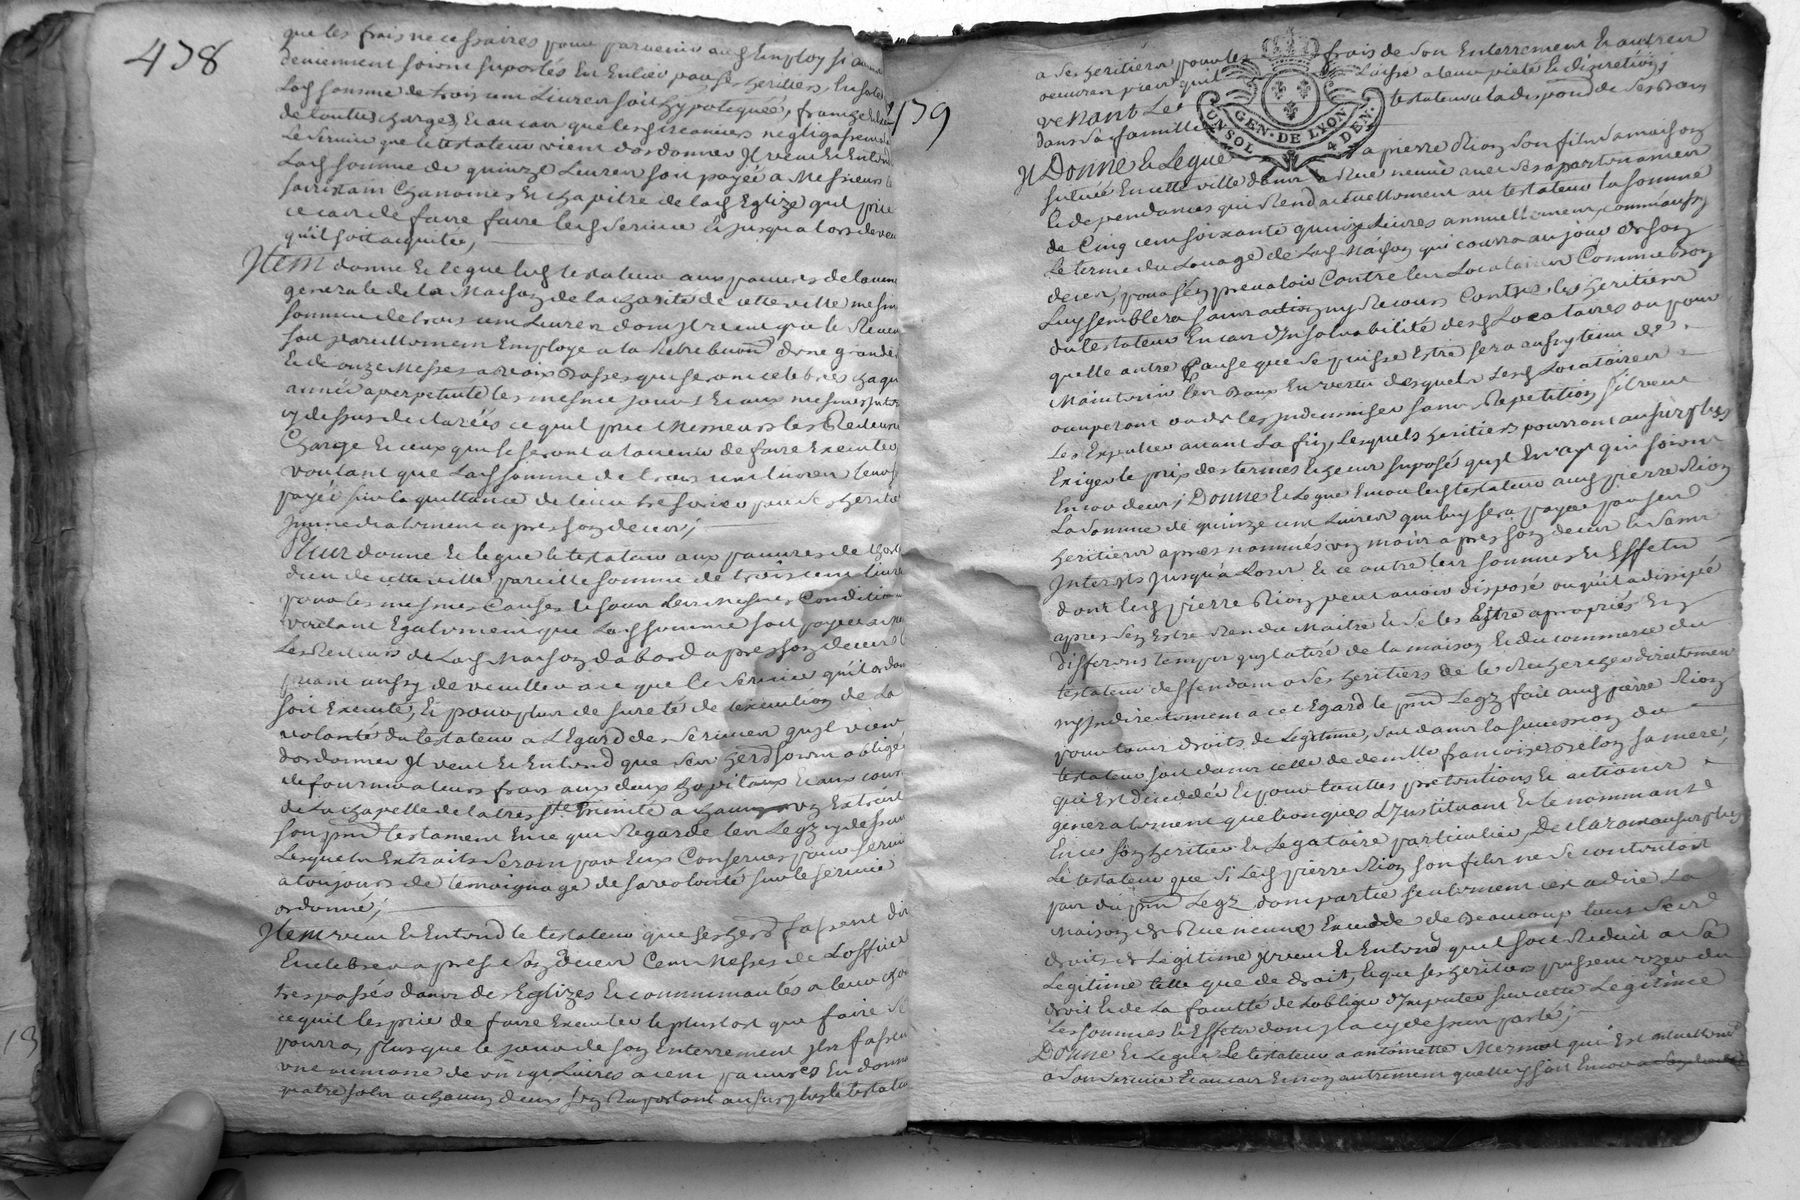 438
que les frais necessaires pour parvenir aud Employ si
deviennent soient suportés En Entier par ses heritiers, En sorte
Lad somme de trois cent Livres soit hypotequée, franche
de toutte charge, Et au cas que les negligassent
Le service que le testateur vient dordonner Il veut Et Entend
Lad somme de quinze Livres soit payée a Messieurs
sacristain Chanoines Et chapitre de lad Eglize quil prie
ce cas de faire faire led service Et jusqu'a lors
quil soit acquitée,
Item donne Et legue led testateur aux pauvres de laum
generale de la Maison de la charité de cette ville mesme
somme de trois cent Livres dont Il veut que le Reven
soit pareillement Employé a la Retribuon dune grande
Et de onze Messes a voix Basses qui seront celebrées chaque
année a perpetuité les mesmes jours Et aux mesmes
cy dessus declarées ce quil prie Messieurs les Recteurs
Charge Et ceux qui le seront a lavenir de faire Executer
voulant que Lad somme de trois cent livres leur
payée sur la quittance de leur tresorier par ses herit
Immediatement apres son deces,
Plus donne Et legue le testateur aux pauvres de lhost
dieu de cette ville pareille somme de trois cent livres
pour les mesmes Causes Et sous Les Mesmes Conditions
voulant Egalement que Lad somme soit payée
Les Recteurs de Lad Maison dabord apres son deces
priant aussy de veiller a ce que le service quil a ordon
soit Executé, Et pour plus de sureté de lexecution de La
volonté du testateur a LEgard des services quil vient
dordonner Il veut Et Entend que ses herers soient obligés
de fournir a leurs frais aux deux hopitaux Et aux
de La chapelle de la tres Ste Trinité a chacun un Extrait
son pnt testament En ce qui Regarde les Legz cy dessus
Lesquels Extraits seront par Eux Conservés pour servir
a toujours de temoignage de sa volonté sur le service
ordonné,
Item veut Et Entend le testateur que ses herers fassent dir
Et celebrer apres son deces Cent Messes de Loffice
trespassés dans des Eglizes Et communautés a leur choi
ce quil les prie de faire Executer le plus tost que faire se
pourra, plus que le jour de son Enterrement Ils fassen
une aumone de vingt Livres a cent pauvres En donna
quatre sols a chacun deux son Raportant au surplus le testateur
139
a ses heritiers pour les frais de son Enterrement Et autres
oeuvres pies quil Laisse a leur pieté Et discretion,
venant Led testateur a la disposon de ses Biens
dans sa famille
Il Donne Et Legue a pierre Rion son fils sa maison
située En cette ville dans la Rue neuve avec ses apartenances
Et dependances qui Rend actuellement au testateur la somme
de Cinq cent soixante quinze Livres annuellement, comme aussy
Le terme du Louage de Lad Maison qui courra au jour de son
deces, pour sen prevaloir Contre les Locataires Comme bon
Luy semblera sans action ny Recours Contre les heritiers
du testateur En cas dInsolvabilité desd Locataires ou pour
quelle autre Cause que se puisse Estre sera aussy tenu de
Maintenir les Baux En vertu desquels lesd Locataires
occuperont ou de les Indemniser sans Repetition sil veut
Les Expulser avant La fin, Lesquels heritiers pourront au surplus
Exiger le pris des termes Echeus suposé quil En aye qui soient
Encor deus, Donne Et Legue Encor led testateur aud pierre Rion
La somme de quinze cent Livres qui luy sera payée par ses
heritiers apres nommés six mois apres son deces Et sans
Interets jusqu'a Lors Et ce outre les sommes Et Effets
dont led pierre Rion peut avoir disposé ou quil a dissipé
apres sen Estre Rendu Maitre Et se les Estre apropriés En
differens temps quil a tiré de la maison Et du commerce du
testateur deffendant a ses heritiers de le Rechercher directement
ny Indirectement a cet Egard le pnt Legz fait aud pierre Rion
pour tous droits de Legitime, soit dans la succession du
testateur soit dans celle de demlle francoise Belon sa mere,
qui Est decedée Et pour touttes pretentions Et actions
generalement quelconques L'Instituant Et le nommant
En ce son heritier Et Legataire particulier, Declarant au surplus
Le testateur que si Led pierre Rion son fils ne se contentoit
pas du pnt Legz dont partie seulement cest a dire La
Maison de Rue neuve Excede de Beaucoup tous ses
droits de Legitime Il veut Et Entend quil soit Reduit a sa
Legitime telle que de droit, Et que ses heritiers puissent user du
droit Et de La faculté de Lobliger d'Imputer sur cette Legitime
Les sommes Et Effets dont Il a cy dessus parlé,
Donne Et Legue Le testateur a antoinette Mermet qui Est actuellemt
a son service Et au cas Et non autrement quelle y soit Encor a son deces
GEN. DE LYON
UN SOL 4 DEN.